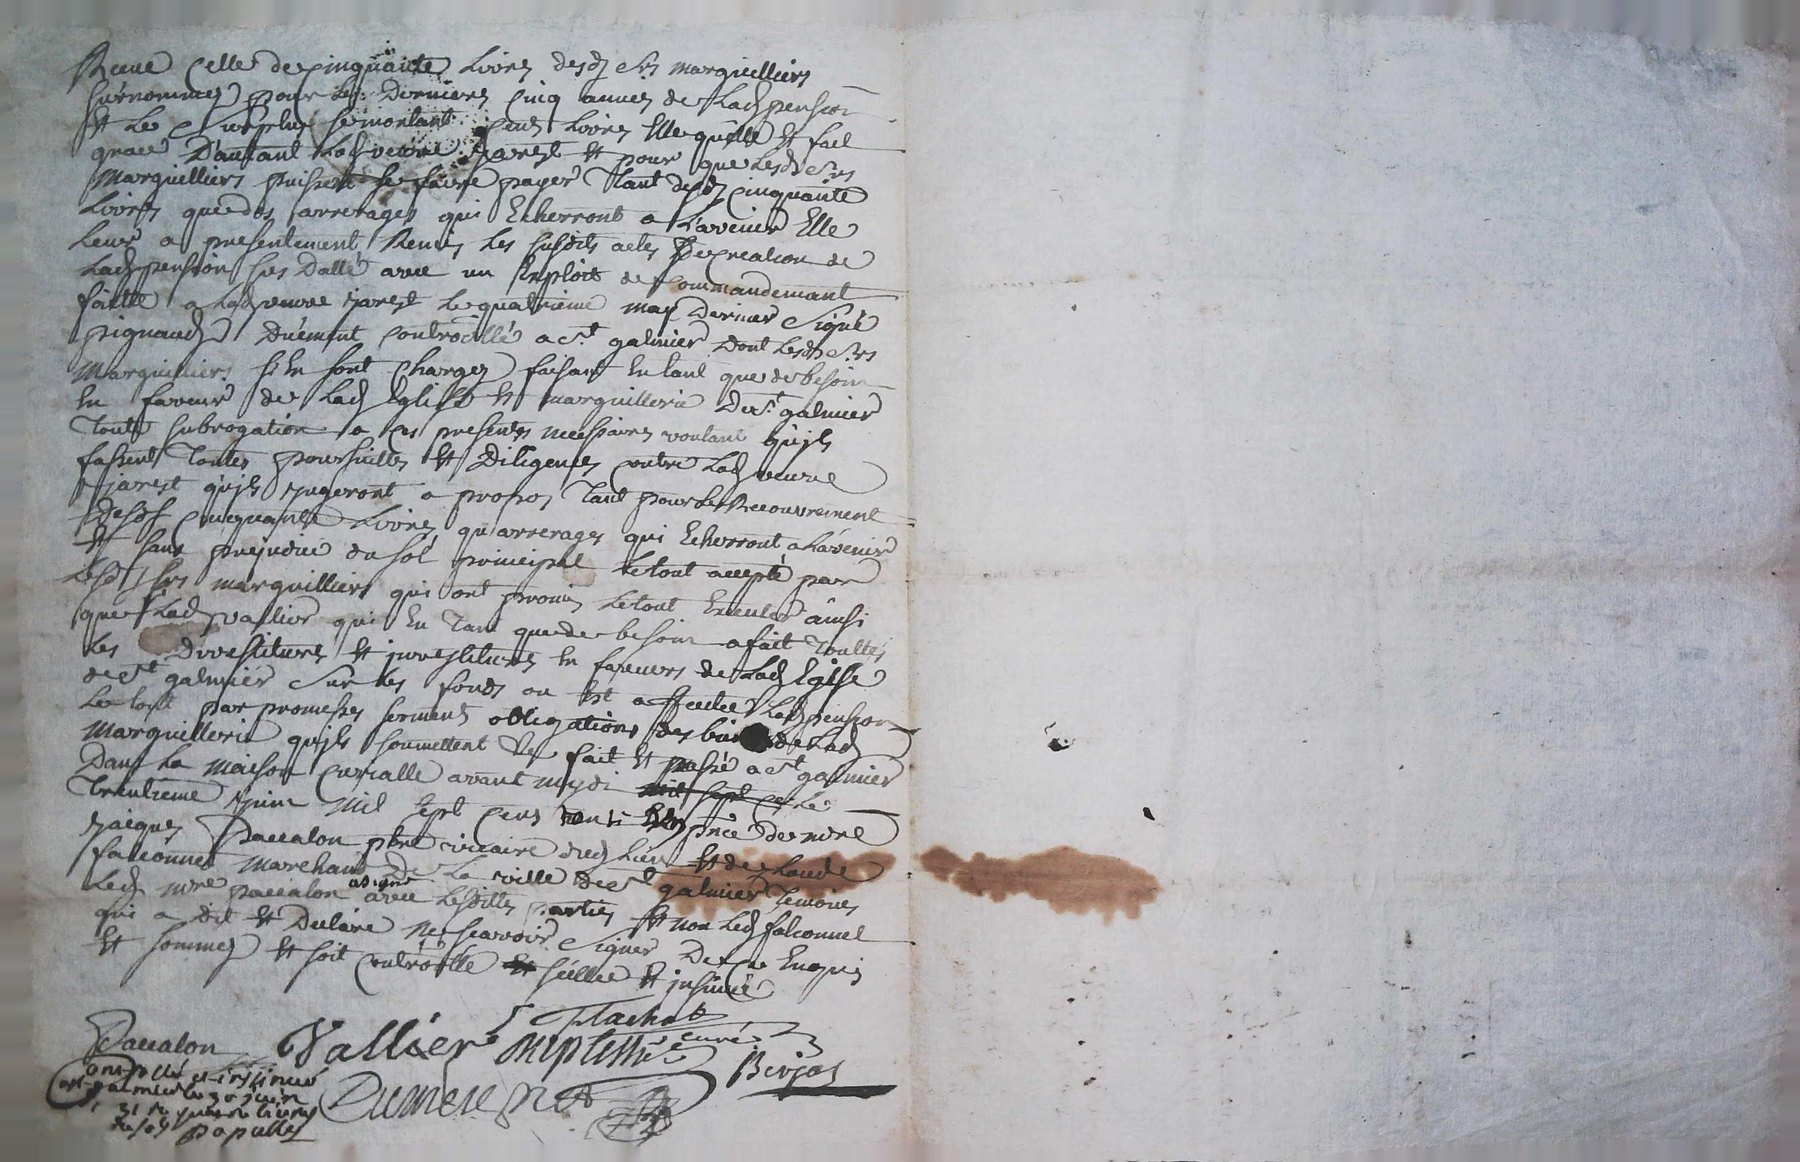 Receue Celle de Cinquante Livres desd srs marguilliers
surnommez pour les dernieres Cinq années de Lad pension
Et Le surplus se montant Cent Livres Elle quitte Et fait
grace D'autant Lad veuve Jarest Et pour que lesd srs
Marguilliers puissent se faire payer Tant desd Cinquante
Livres que des arrerages qui Echerront a L'avenir Elle
Leur a presentement Remis Les susdits actes De creation de
Lad pension sus Datté avec un Exploit de Commandement
faitte a Lad veuve Jarest Le quatrieme may Dernier Signé
pignaud Duement Controllé a St galmier Dont Lesd srs
Marguilliers se sont Chargez faisant En tant que de besoin
En faveur de Lad Eglise Et marguillerie De St galmier
Toute subrogation a ces presentes necessaires voulant qu'jls
fassent Toutes poursuittes Et Diligences contre Lad veuve
Jarest qu'jls jugeront a propos Tant pour Le Recouvrement
Desd Cinquante Livres qu'arrerages qui Echerront a L'avenir
Et sans prejudice du sol principal Le tout accepté par
Lesd srs marguilliers qui ont promis Le tout Executer ainsi
que Lad vallier qui En Tant que de besoin a fait Touttes
Les Divestitures Et jnvestitures En faveurs de Lad Eglise
de St galmier Sur Les fonds ou Est affectée Lad pension
Le tout par promesses serment obligations des biens de Lad
Marguillerie qu'jls soumettent fait Et passé a St galmier
Dans La maison Curialle avant mydi mil sept Le
Trentieme Juin Mil Sept Cens Trente de mre
Jacques Paccalon pbre viccaire dud Lieu Et de Laude
falconnet marchand De La ville de St galmier Temoins
Led mre paccalon a signé avec Lesdittes parties Et non Led falconnet
qui a dit Et Declaré Ne scavoir Signer De ce Enquis
Et sommez Et soit controllé Et scellée Et jnsinué
Flachat
Paccalon Vallier curé Berjas
Dumere
Controllé et insinué
a St galmier le 30 juin
papulles